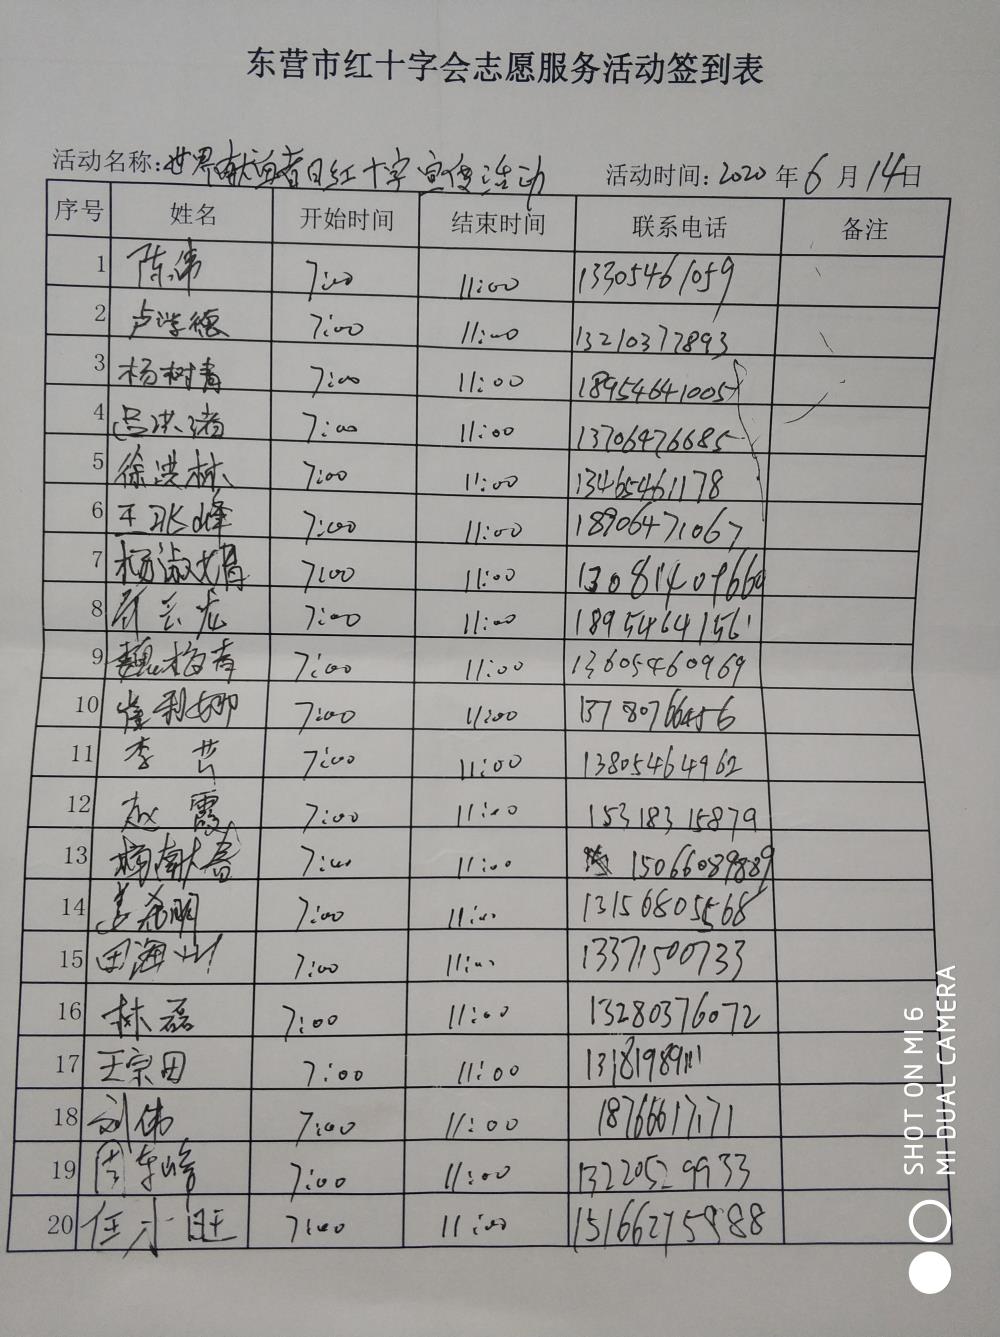 东营市红十字会志愿服务活动签到表
活动名称:世界献血者日红十字宣传活动 活动时间:2020年6月14日
序号 姓名 开始时间 结束时间 联系电话 备注
1 陈伟 7:00 11:00 13305461059
2 卢学德 7:00 11:00 13210377893
3 杨树青 7:00 11:00 18954641005
4 吕洪绪 7:00 11:00 13706476685
5 徐洪林 7:00 11:00 13465461178
6 王永峰 7:00 11:00 18906471067
7 杨淑娟 7:00 11:00
8 7:00 11:00 18954641561
9 魏梅青 7:00 11:00 13605460969
10 崔利娜 7:00 11:00 13780766456
11 李 芸 7:00 11:00 13805464962
12 赵 霞 7:00 11:00 15318315879
13 7:00 11:00 15066089889
14 姜希明 7:00 11:00 13156805568
15 田海山 7:00 11:00 13371500733
16 林磊 7:00 11:00 13280376072
17 王宗田 7:00 11:00
18 刘伟 7:00 11:00 18766617171
19 周东峰 7:00 11:00 13220529933
20 任小旺 7:00 11:00 15166275988
SHOT ON MI 6
MI DUAL CAMERA